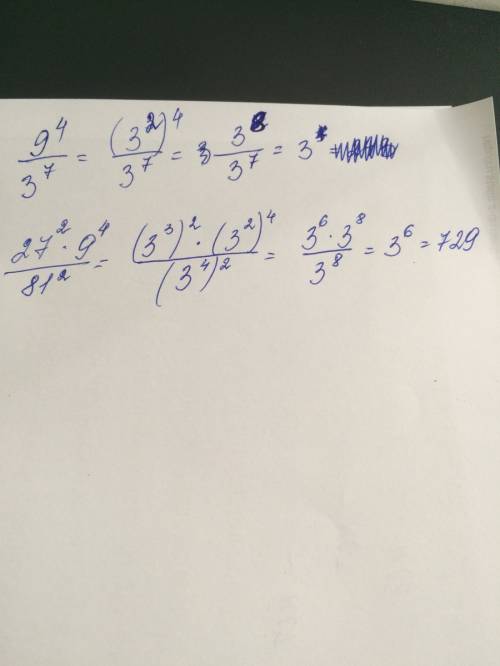 9⁴/3⁷ = (3²)⁴/3⁷ = 3⁸/3⁷ = 3
27²·9⁴/81² = (3³)²·(3²)⁴/(3⁴)² = 3⁶·3⁸/3⁸ = 3⁶ = 729